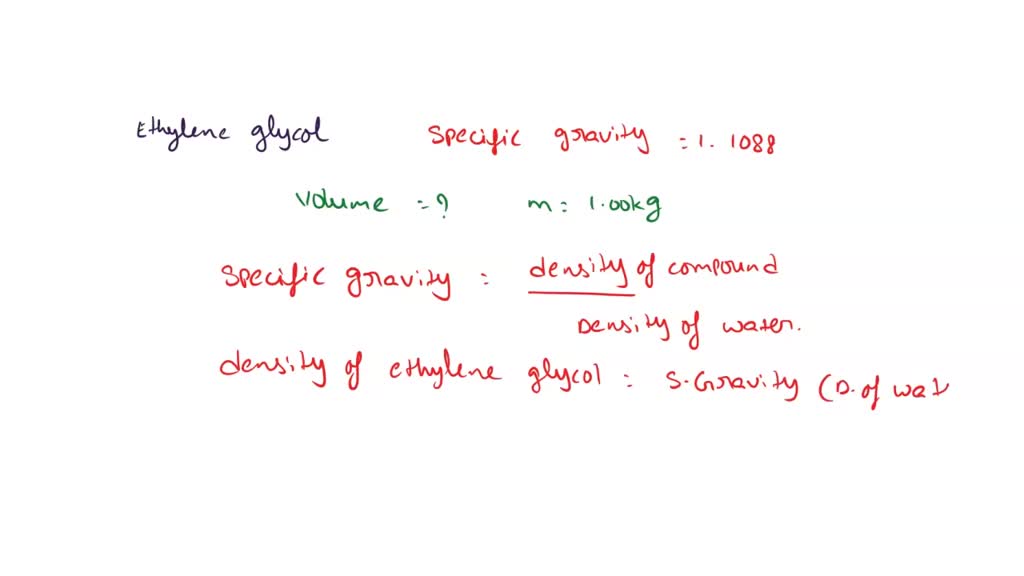 Ethylene glycol specific gravity = 1.1088
volume = ? m = 1.00kg
specific gravity = density of compound
Density of water.
density of ethylene glycol = S.Gravity (D.of wat